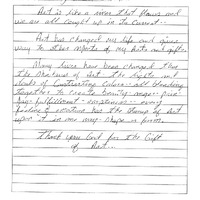 Art is like a river that flows and
we are all caught up in its current.
Art has changed my life and given
way to other aspects of my Arts and gifts.
Many lives have been changed thru
the Medium of Art. The lights and
darks of Contrasting Colors - all blending
together to create beauty - anger - pain
joy - fulfillment - happiness - every
feeling & emotion has the stamp of Art
upon it in one way shape or form.
Thank you God for the Gift
of Art.